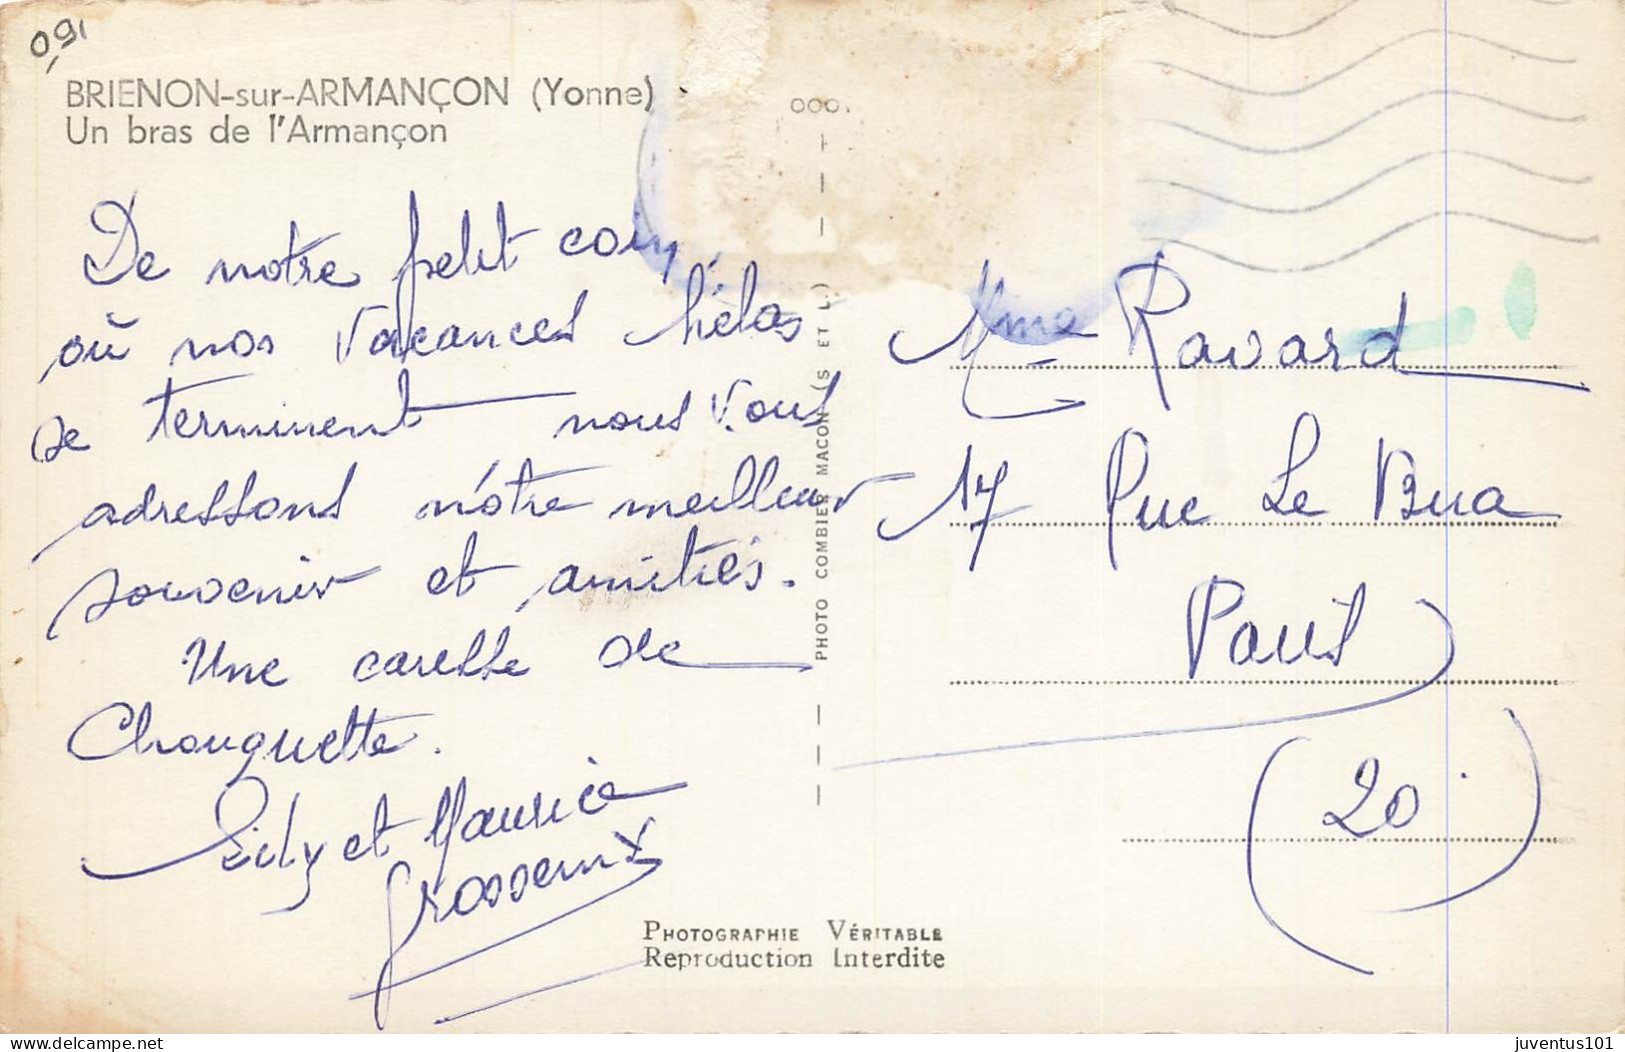 BRIENON-sur-ARMANÇON (Yonne)
Un bras de l'Armançon
De notre petit coin,
où nos vacances hélas
se terminent nous vous
adressons nôtre meilleur
souvenir et amitiés.
Une caresse de
Chouquette.
et Maurice
PHOTO COMBIER MACON (S ET L)
Mme Ravard
17 Rue Le Bua
Paris
(20)
PHOTOGRAPHIE VÉRITABLE
Reproduction Interdite
www.delcampe.net
juventus101